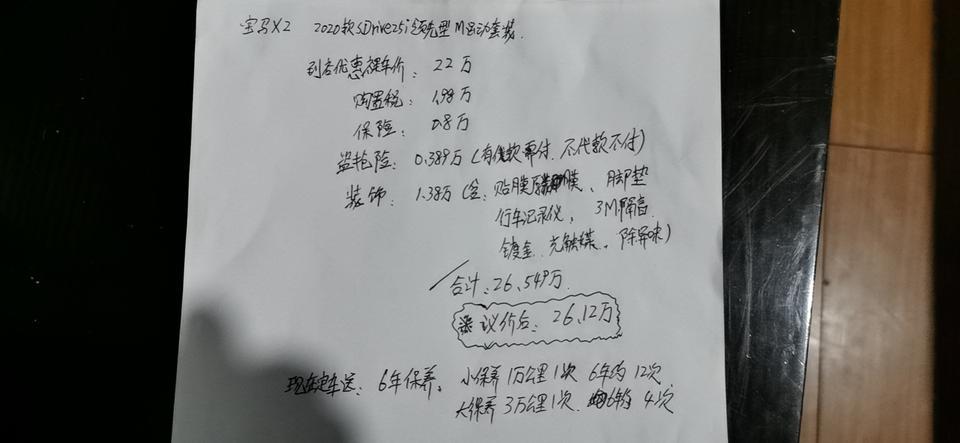 宝马X2 2020款sDrive25i领先型M运动套装.
到店优惠裸车价: 22万
购置税: 1.98万
保险: 0.8万
盗抢险: 0.389万 (有代款需付. 不代款不付)
装饰: 1.38万 (含: 贴膜、脚垫
行车记录仪, 3M隔音
镀金. 光触媒、除异味)
合计: 26.549万.
议价后: 26.12万
现在定车送: 6年保养。小保养1万公里1次 6年内12次,
大保养3万公里1次. 6年内 4次